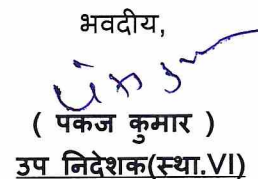 भवदीय,
( पकज कुमार )
उप निदेशक(स्था.VI)